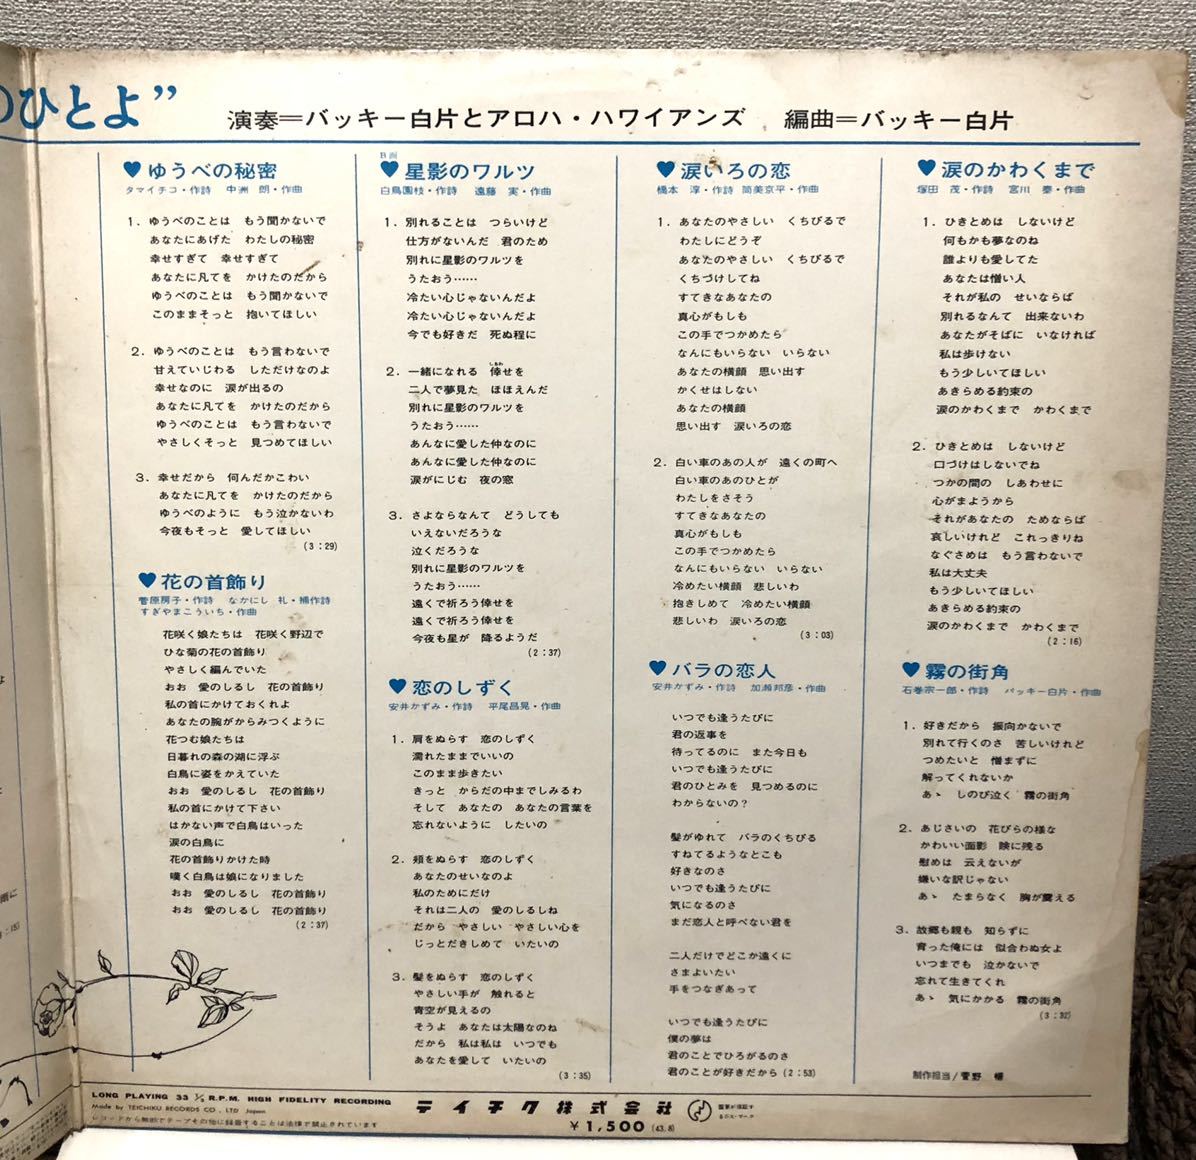 のひとよ”
演奏＝バッキー白片とアロハ・ハワイアンズ　編曲＝バッキー白片
♥ゆうべの秘密
タマイチコ・作詩　中洲　朗・作曲
1. ゆうべのことは　もう聞かないで
あなたにあげた　わたしの秘密
幸せすぎて　幸せすぎて
あなたに凡てを　かけたのだから
ゆうべのことは　もう聞かないで
このままそっと　抱いてほしい
2. ゆうべのことは　もう言わないで
甘えていじわる　しただけなのよ
幸せなのに　涙が出るの
あなたに凡てを　かけたのだから
ゆうべのことは　もう言わないで
やさしくそっと　見つめてほしい
3. 幸せだから　何んだかこわい
あなたに凡てを　かけたのだから
ゆうべのように　もう泣かないわ
今夜もそっと　愛してほしい
(3：29)
♥花の首飾り
菅原房子・作詩　なかにし　礼・補作詩
すぎやまこういち・作曲
花咲く娘たちは　花咲く野辺で
ひな菊の花の首飾り
やさしく編んでいた
おお　愛のしるし　花の首飾り
私の首にかけておくれよ
あなたの腕がからみつくように
花つむ娘たちは
日暮れの森の湖に浮ぶ
白鳥に姿をかえていた
おお　愛のしるし　花の首飾り
私の首にかけて下さい
はかない声で白鳥はいった
涙の白鳥に
花の首飾りかけた時
嘆く白鳥は娘になりました
おお　愛のしるし　花の首飾り
おお　愛のしるし　花の首飾り
(2：37)
B面
♥星影のワルツ
白鳥園枝・作詩　遠藤　実・作曲
1. 別れることは　つらいけど
仕方がないんだ　君のため
別れに星影のワルツを
うたおう……
冷たい心じゃないんだよ
冷たい心じゃないんだよ
今でも好きだ　死ぬ程に
しあわ
2. 一緒になれる　倖せを
二人で夢見た　ほほえんだ
別れに星影のワルツを
うたおう……
あんなに愛した仲なのに
あんなに愛した仲なのに
涙がにじむ　夜の窓
3. さよならなんて　どうしても
いえないだろうな
泣くだろうな
別れに星影のワルツを
うたおう……
遠くで祈ろう倖せを
遠くで祈ろう倖せを
今夜も星が　降るようだ
(2：37)
♥恋のしずく
安井かずみ・作詩　平尾昌晃・作曲
1. 肩をぬらす　恋のしずく
濡れたままでいいの
このまま歩きたい
きっと　からだの中までしみるわ
そして　あなたの　あなたの言葉を
忘れないように　したいの
2. 頬をぬらす　恋のしずく
あなたのせいなのよ
私のためにだけ
それは二人の　愛のしるしね
だから　やさしい　やさしい心を
じっとだきしめて　いたいの
3. 髪をぬらす　恋のしずく
やさしい手が　触れると
青空が見えるの
そうよ　あなたは太陽なのね
だから　私は私は　いつでも
あなたを愛して　いたいの
(3：35)
♥涙いろの恋
橋本　淳・作詩　筒美京平・作曲
1. あなたのやさしい　くちびるで
わたしにどうぞ
あなたのやさしい　くちびるで
くちづけしてね
すてきなあなたの
真心がもしも
この手でつかめたら
なんにもいらない　いらない
あなたの横顔　思い出す
かくせはしない
あなたの横顔
思い出す　涙いろの恋
2. 白い車のあの人が　遠くの町へ
白い車のあのひとが
わたしをさそう
すてきなあなたの
真心がもしも
この手でつかめたら
なんにもいらない　いらない
冷めたい横顔　悲しいわ
抱きしめて　冷めたい横顔
悲しいわ　涙いろの恋
(3：03)
♥バラの恋人
安井かずみ・作詩　加瀬邦彦・作曲
いつでも逢うたびに
君の返事を
待ってるのに　また今日も
いつでも逢うたびに
君のひとみを　見つめるのに
わからないの？
髪がゆれて　バラのくちびる
すねてるようなとこも
好きなのさ
いつでも逢うたびに
気になるのさ
まだ恋人と呼べない君を
二人だけでどこか遠くに
さまよいたい
手をつなぎあって
いつでも逢うたびに
僕の夢は
君のことでひろがるのさ
君のことが好きだから (2：53)
♥涙のかわくまで
塚田　茂・作詩　宮川　泰・作曲
1. ひきとめは　しないけど
何もかも夢なのね
誰よりも愛してた
あなたは憎い人
それが私の　せいならば
別れるなんて　出来ないわ
あなたがそばに　いなければ
私は歩けない
もう少しいてほしい
あきらめる約束の
涙のかわくまで　かわくまで
2. ひきとめは　しないけど
口づけはしないでね
つかの間の　しあわせに
心がまようから
それがあなたの　ためならば
哀しいけれど　これっきりね
なぐさめは　もう言わないで
私は大丈夫
もう少しいてほしい
あきらめる約束の
涙のかわくまで　かわくまで
(2：16)
♥霧の街角
石巻宗一郎・作詩　バッキー白片・作曲
1. 好きだから　振向かないで
別れて行くのさ　苦しいけれど
つめたいと　憎まずに
解ってくれないか
あゝ　しのび泣く　霧の街角
2. あじさいの　花びらの様な
かわいい面影　瞼に残る
慰めは　云えないが
嫌いな訳じゃない
あゝ　たまらなく　胸が震える
3. 故郷も親も　知らずに
育った俺には　似合わぬ女よ
いつまでも　泣かないで
忘れて生きてくれ
あゝ　気にかかる　霧の街角
(3：32)
制作担当/菅野　
LONG PLAYING 33 1/3 R.P.M. HIGH FIDELITY RECORDING
Made by TEICHIKU RECORDS CO., LTD Japan
レコードから無断でテープその他に録音することは法律で禁止されています
テイチク株式会社
¥1,500 (43.8)